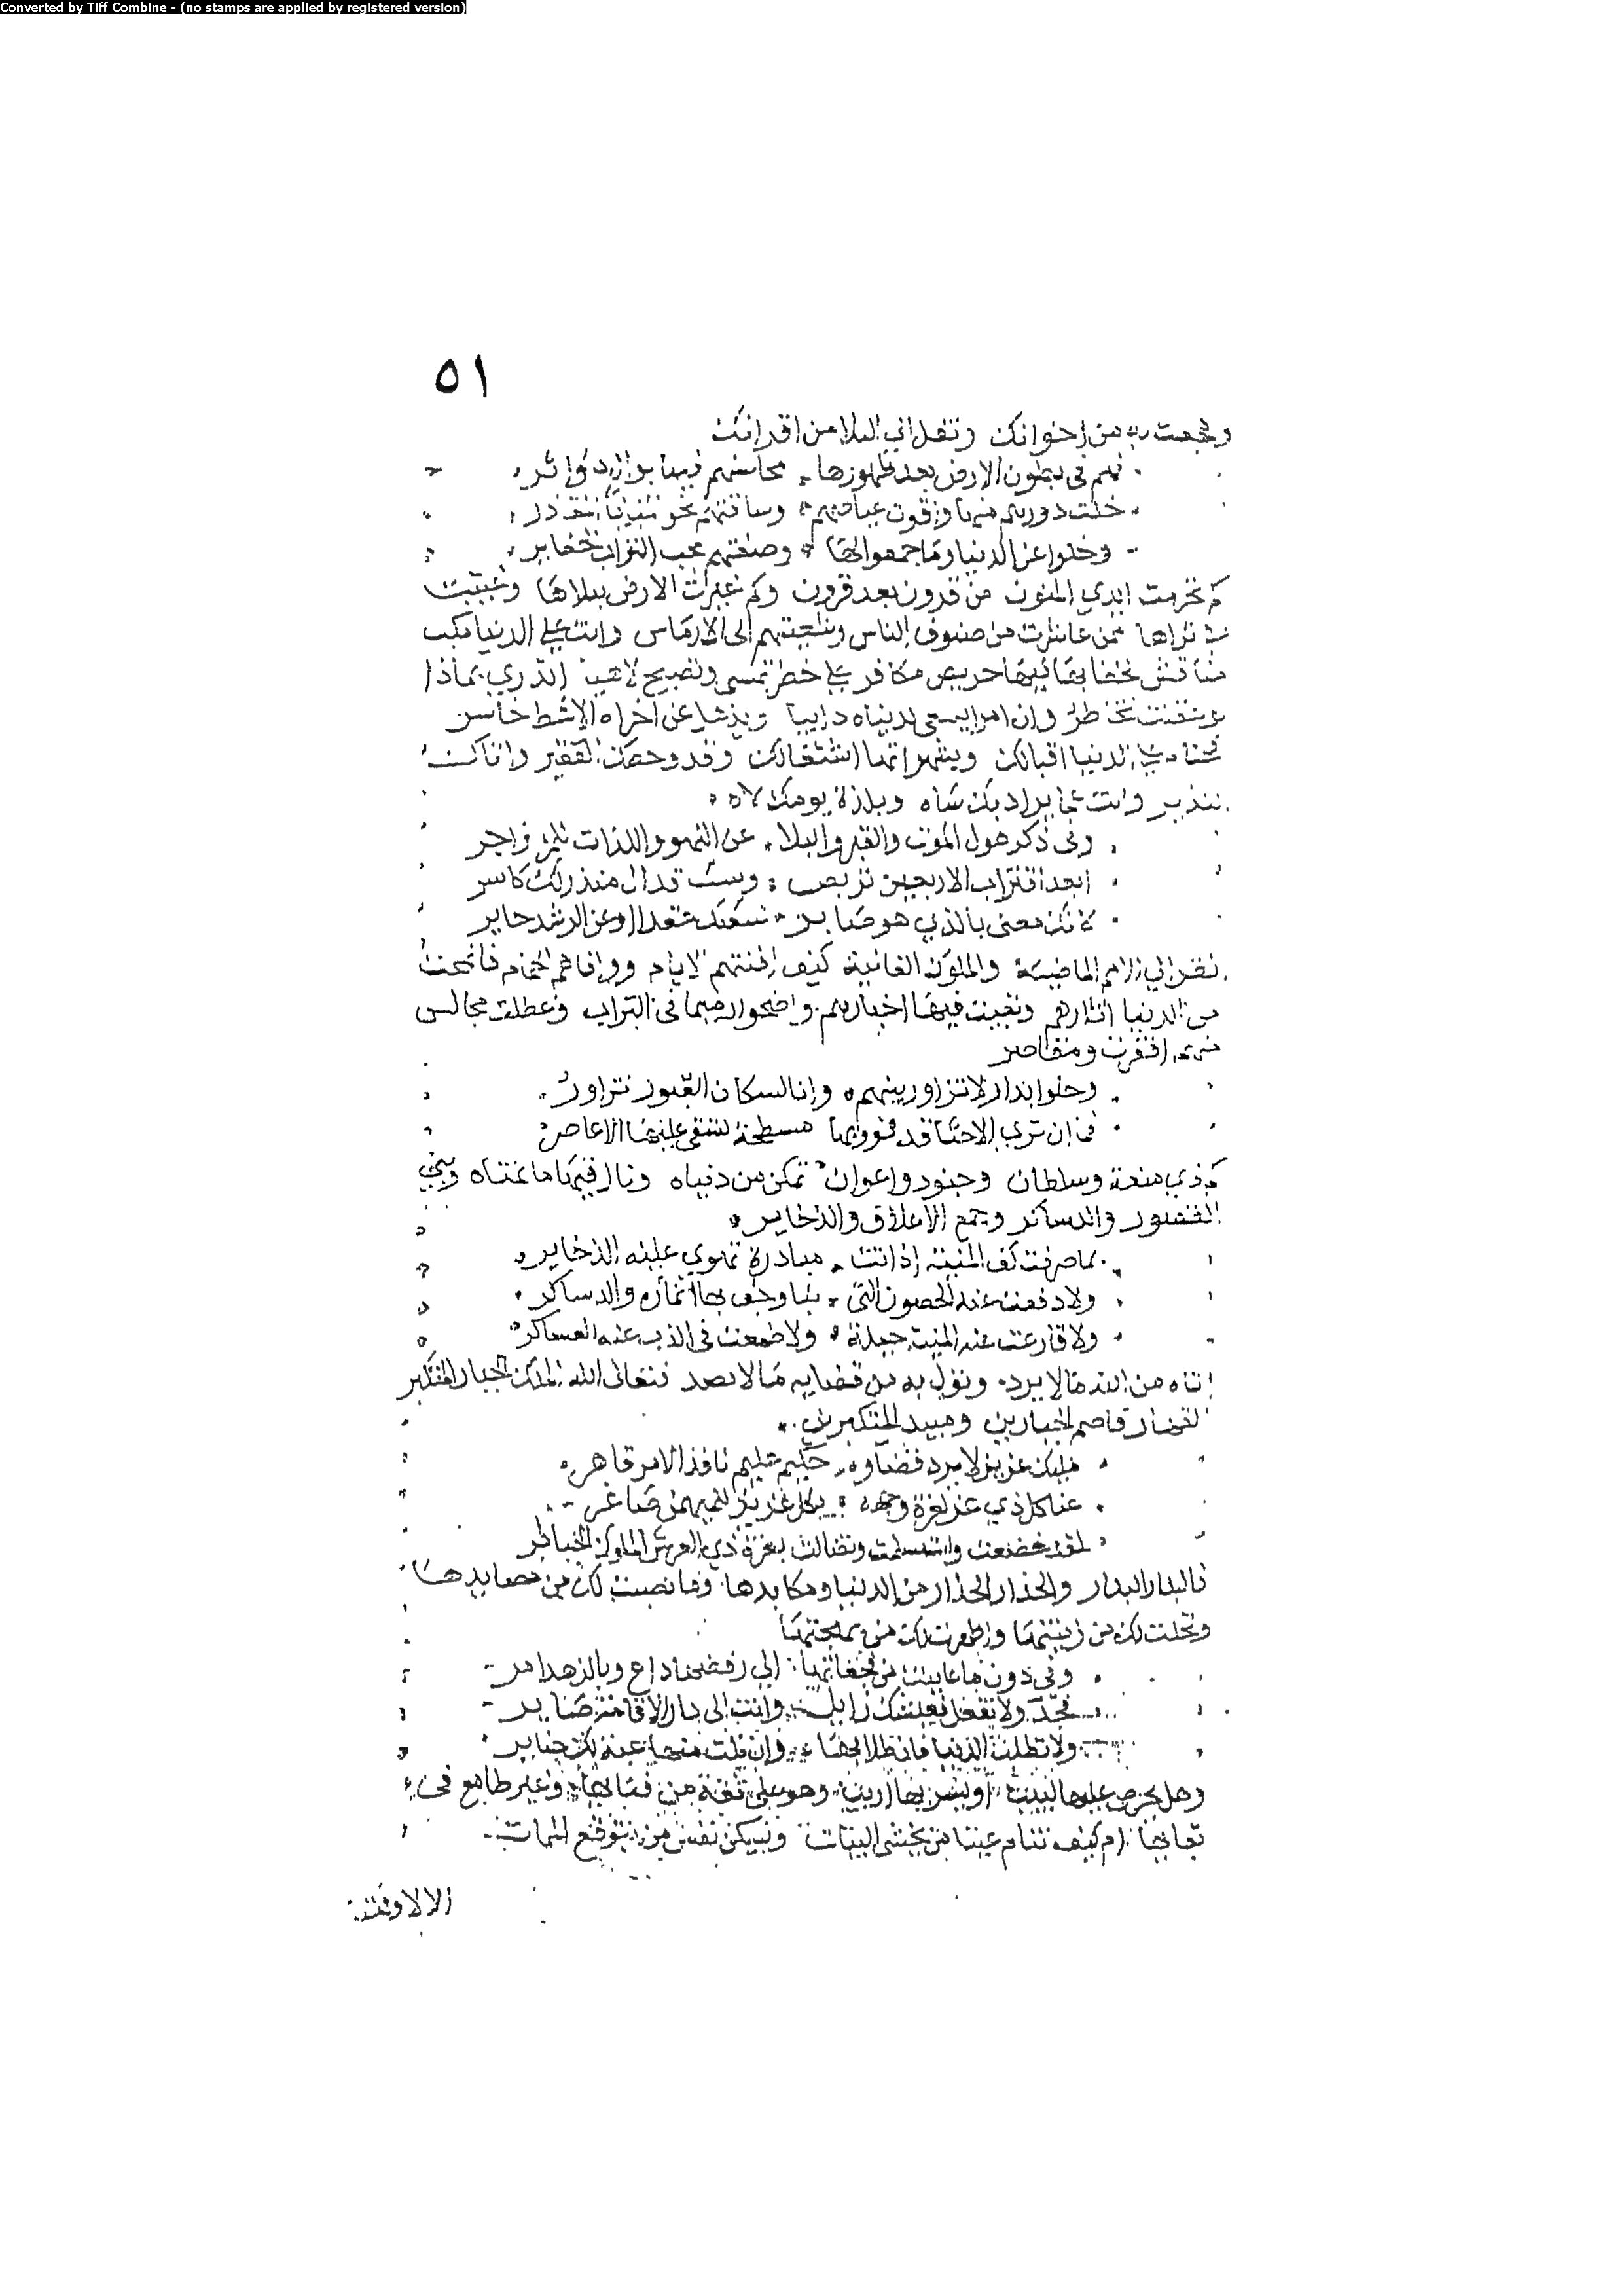 Converted by Tiff Combine - (no stamps are applied by registered version)
٥١
وفجعت به من اخوانك ونقل الي البلا من اقرانك
فهم في بطون الارض بعد ظهورها محاسنهم فيها بوال دواثر
خلت دورهم منها واقوت عراصهم وساقتهم نحو
وخلوا عن الدنيا وما جمعوا لها وضمتهم تحت التراب الحفاير
كم تخرمت ايدي المنون من قرون بعد قرون وكم غيرت الارض ببلاها وغيبت
ثراها ممن عاشرت من صنوف الناس وشيعتهم الى الارماس وانت على الدنيا مكب
حريص مكاثر على خطر تمسي وتصبح لاهيا اتدري بماذا
تخاطر وان امرا يسعى لدنياه دايبا ويذهل عن اخراه لاشك خاسر
الدنيا اقبالك وبشهواتها اشتغالك وقد وخطك القتير واتاك
النذير وانت عما يراد بك ساه وبلذة يومك لاه
وفي ذكر هول الموت والقبر والبلا عن اللهو واللذات للمرء زاجر
ابعد اقتراب الاربعين تربص وشيب قذال منذر لك كاسر
كانك معنى بالذي هو ضاير لنفسك عمدا او عن الرشد حاير
انظر الي الامم الماضية والملوك الفانية كيف افنتهم الايام ووافاهم الحمام فانمحت
من الدنيا اثارهم وبقيت فيها اخبارهم واضحوا رميما في التراب وعطلت مجالس
منهم اقفرت ومقاصر
وحلوا بدار لا تزاور بينهم وانا لسكان القبور تزاور
فما ان ترى الا جثا قد ثووا بها مسطحة تسفى عليها الاعاصر
كم ذي منعة وسلطان وجنود واعوان تمكن من دنياه ونال فيها ما تمناه وبنى
القصور والدساكر وجمع الاعلاق والذخاير
فما صرفت كف المنية اذ اتت مبادرة تهوي عليه الذخاير
ولا دفعت عنه الحصون التي بنا وحف بها انهاره والدساكر
ولا قارعت عنه المنية حيلة ولا طمعت في الذب عنه العساكر
اتاه من الله ما لا يرد ونزل به من قضايه ما لا يصد فتعالى الله الملك الجبار المتكبر
القهار قاصم الجبارين ومبيد المتكبرين
مليك عزيز لا يرد قضاوه حكيم عليم نافذ الامر قاهر
عنا كل ذي عز لعزة وجهه فكل عزيز للمهيمن صاغر
لقد خضعت واستسلمت وتضالت لعزة ذي العرش الملوك الجبابر
فالبدار البدار والحذار الحذار من الدنيا ومكايدها وما نصبت لك من مصايدها
وتحلت لك من زينتها واظهرت لك من بهجتها
وفي دون ما عاينت من فجعاتها الي رفضها داع وبالزهد امر
فجد ولا تغفل فعيشك زايل وانت الى دار الاقامة صاير
ولا تطلب الدنيا فان طلابها وان نلت منها غبه لك ضاير
وهل يحرص عليها لبيب او يسر بها اريب وهو على ثقة من فنايها وغير طامع في
بقايها ام كيف تنام عينا من يخشى البيات وتسكن نفس من يتوقع الممات
الا لا